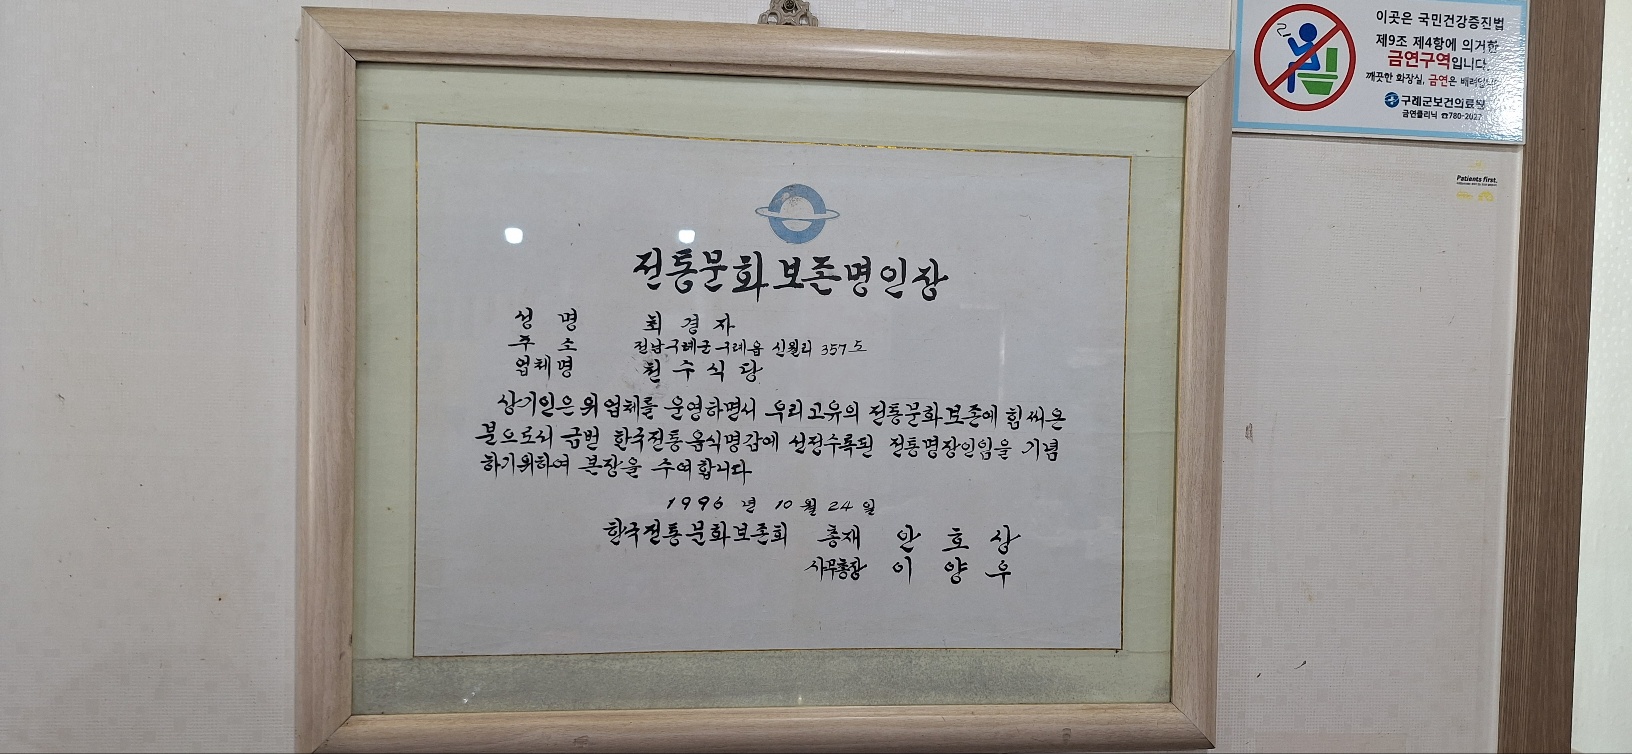 전통문화보존명인장
성 명 최 경 자
주 소 전남구례군구례읍 신월리 357도
업체명 천수식당
상기인은 위 업체를 운영하면서 우리고유의 전통문화보존에 힘써온
분으로서 금번 한국전통음식명감에 선정수록된 전통명장인임을 기념
하기위하여 본장을 수여합니다
1996 년 10 월 24 일
한국전통문화보존회 총재 안 호 상
사무총장 이 양 우
이곳은 국민건강증진법
제9조 제4항에 의거한
금연구역입니다.
깨끗한 화장실, 금연은 배려입니다
구례군보건의료원
금연클리닉 ☎780-2027
Patients first.